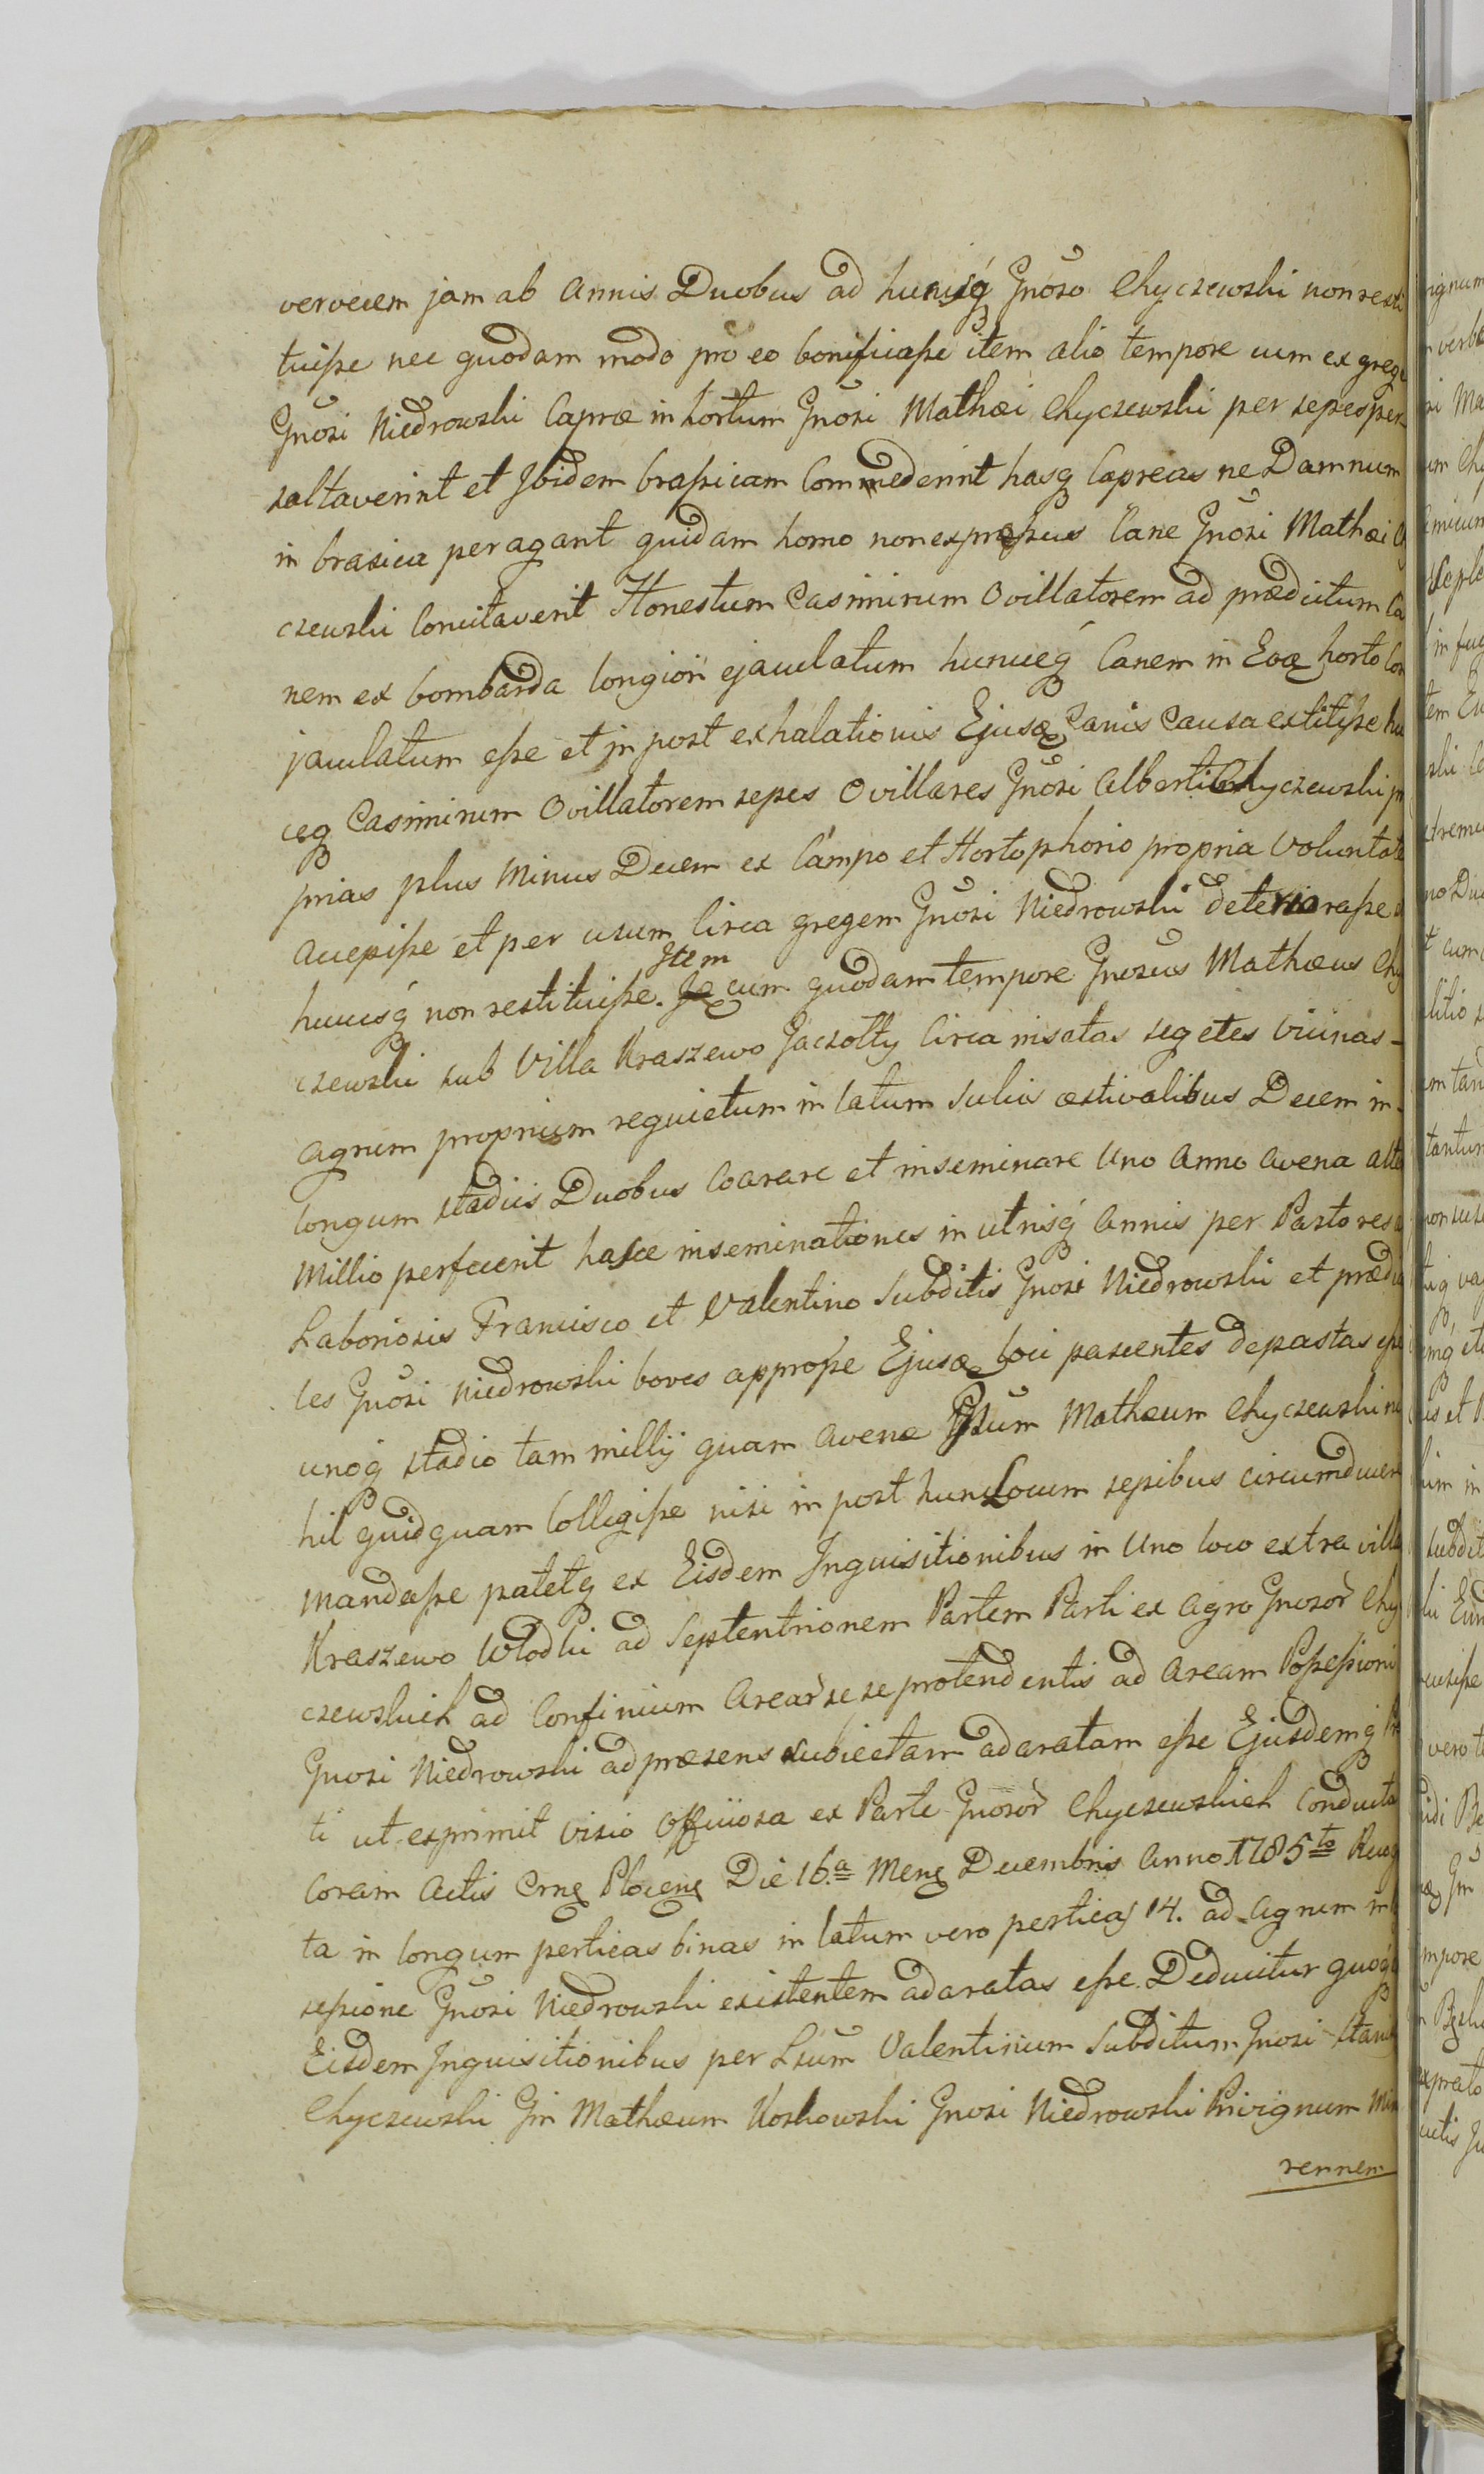 vervecem jam ab Annis Duobus ad hucusq Gnoso Chyczewski non resti
tuisse nec quodam modo pro eo bonificasse item alio tempore cum ex grege
Gnosi Niedrowski Capræ in hortum Gnosi Mathæi Chyczewski per sepes per-
saltaverint et Jbidem brassicam Commederint hasq Capreas ne Damnum
in brasica peragant quidam homo non expressus Cane Gnosi Mathæi
czewski Concitaverit Honestum Casimirum Ovillatorem ad prædictum Ca
nem ex bombarda longiori ejaculatum huncq Canem in Eoq horto
jaculatum esse et in post exhalationis Ejusq Canis Causa extitisse hu
cq Casimirum Ovillatorem sepes Ovillares Gnosi Alberti Chyczewski
prias plus Minus Decem ex Campo et Hortophorio propria Voluntate
Accepisse et per usum Circa gregem Gnosi Niedrowski deteriorasse
hucusq non restituisse. Item cum quodam tempore Gnosus Mathæus Chy
czewski sub Villa Kraszewo Gaczołty Circa insatas segetes Vicinas-
Agrum proprium requietum in latum Sulcis æstivalibus Decem in-
longum stadiis Duobus Coarare et inseminare Uno Anno Avena alte
Millio perfecerit hasce inseminationes in utrisq Annis per Pastores
Laboriosis Francisco et Valentino Subditis Gnosi Niedrowski et prædi
les Gnosi Niedrowski boves appropse Ejusq loci pascentes depastas esse
unoq stadio tam millij quam Avenæ Gsum Mathæum Chyczewski ni
hil quidquam Collegisse nisi in post hunc Locum sepibus circumducere
mandasse patetq ex Eisdem Inquisitionibus in Uno loco extra villa
Kraszewo Włodki ad Septentrionem Partem Parti ex Agro Gnosor Chy
czewskich ad Confinium Arear sese protendentis ad Aream Possessioni
Gnosi Niedrowski ad præsens subiectam adaratam esse Ejusdemq
ti ut exprimit visio Officiosa ex Parte Gnosor Chyczewskich Conducta
Coram Actis Crnq Plocenq Die 16.a Menq Decembris Anno 1785to
ta in longum perticas binas in latum vero perticas 14. ad Agrum in
sessione Gnosi Niedrowski existentem adaratas esse. Deducitur quoq
Eisdem Inquisitionibus per Lsum Valentinum Subditum Gnosi Stani
Chyczewski Gm Mathæum Koskowski Gnosi Niedrowski Privignum Mino
rennem